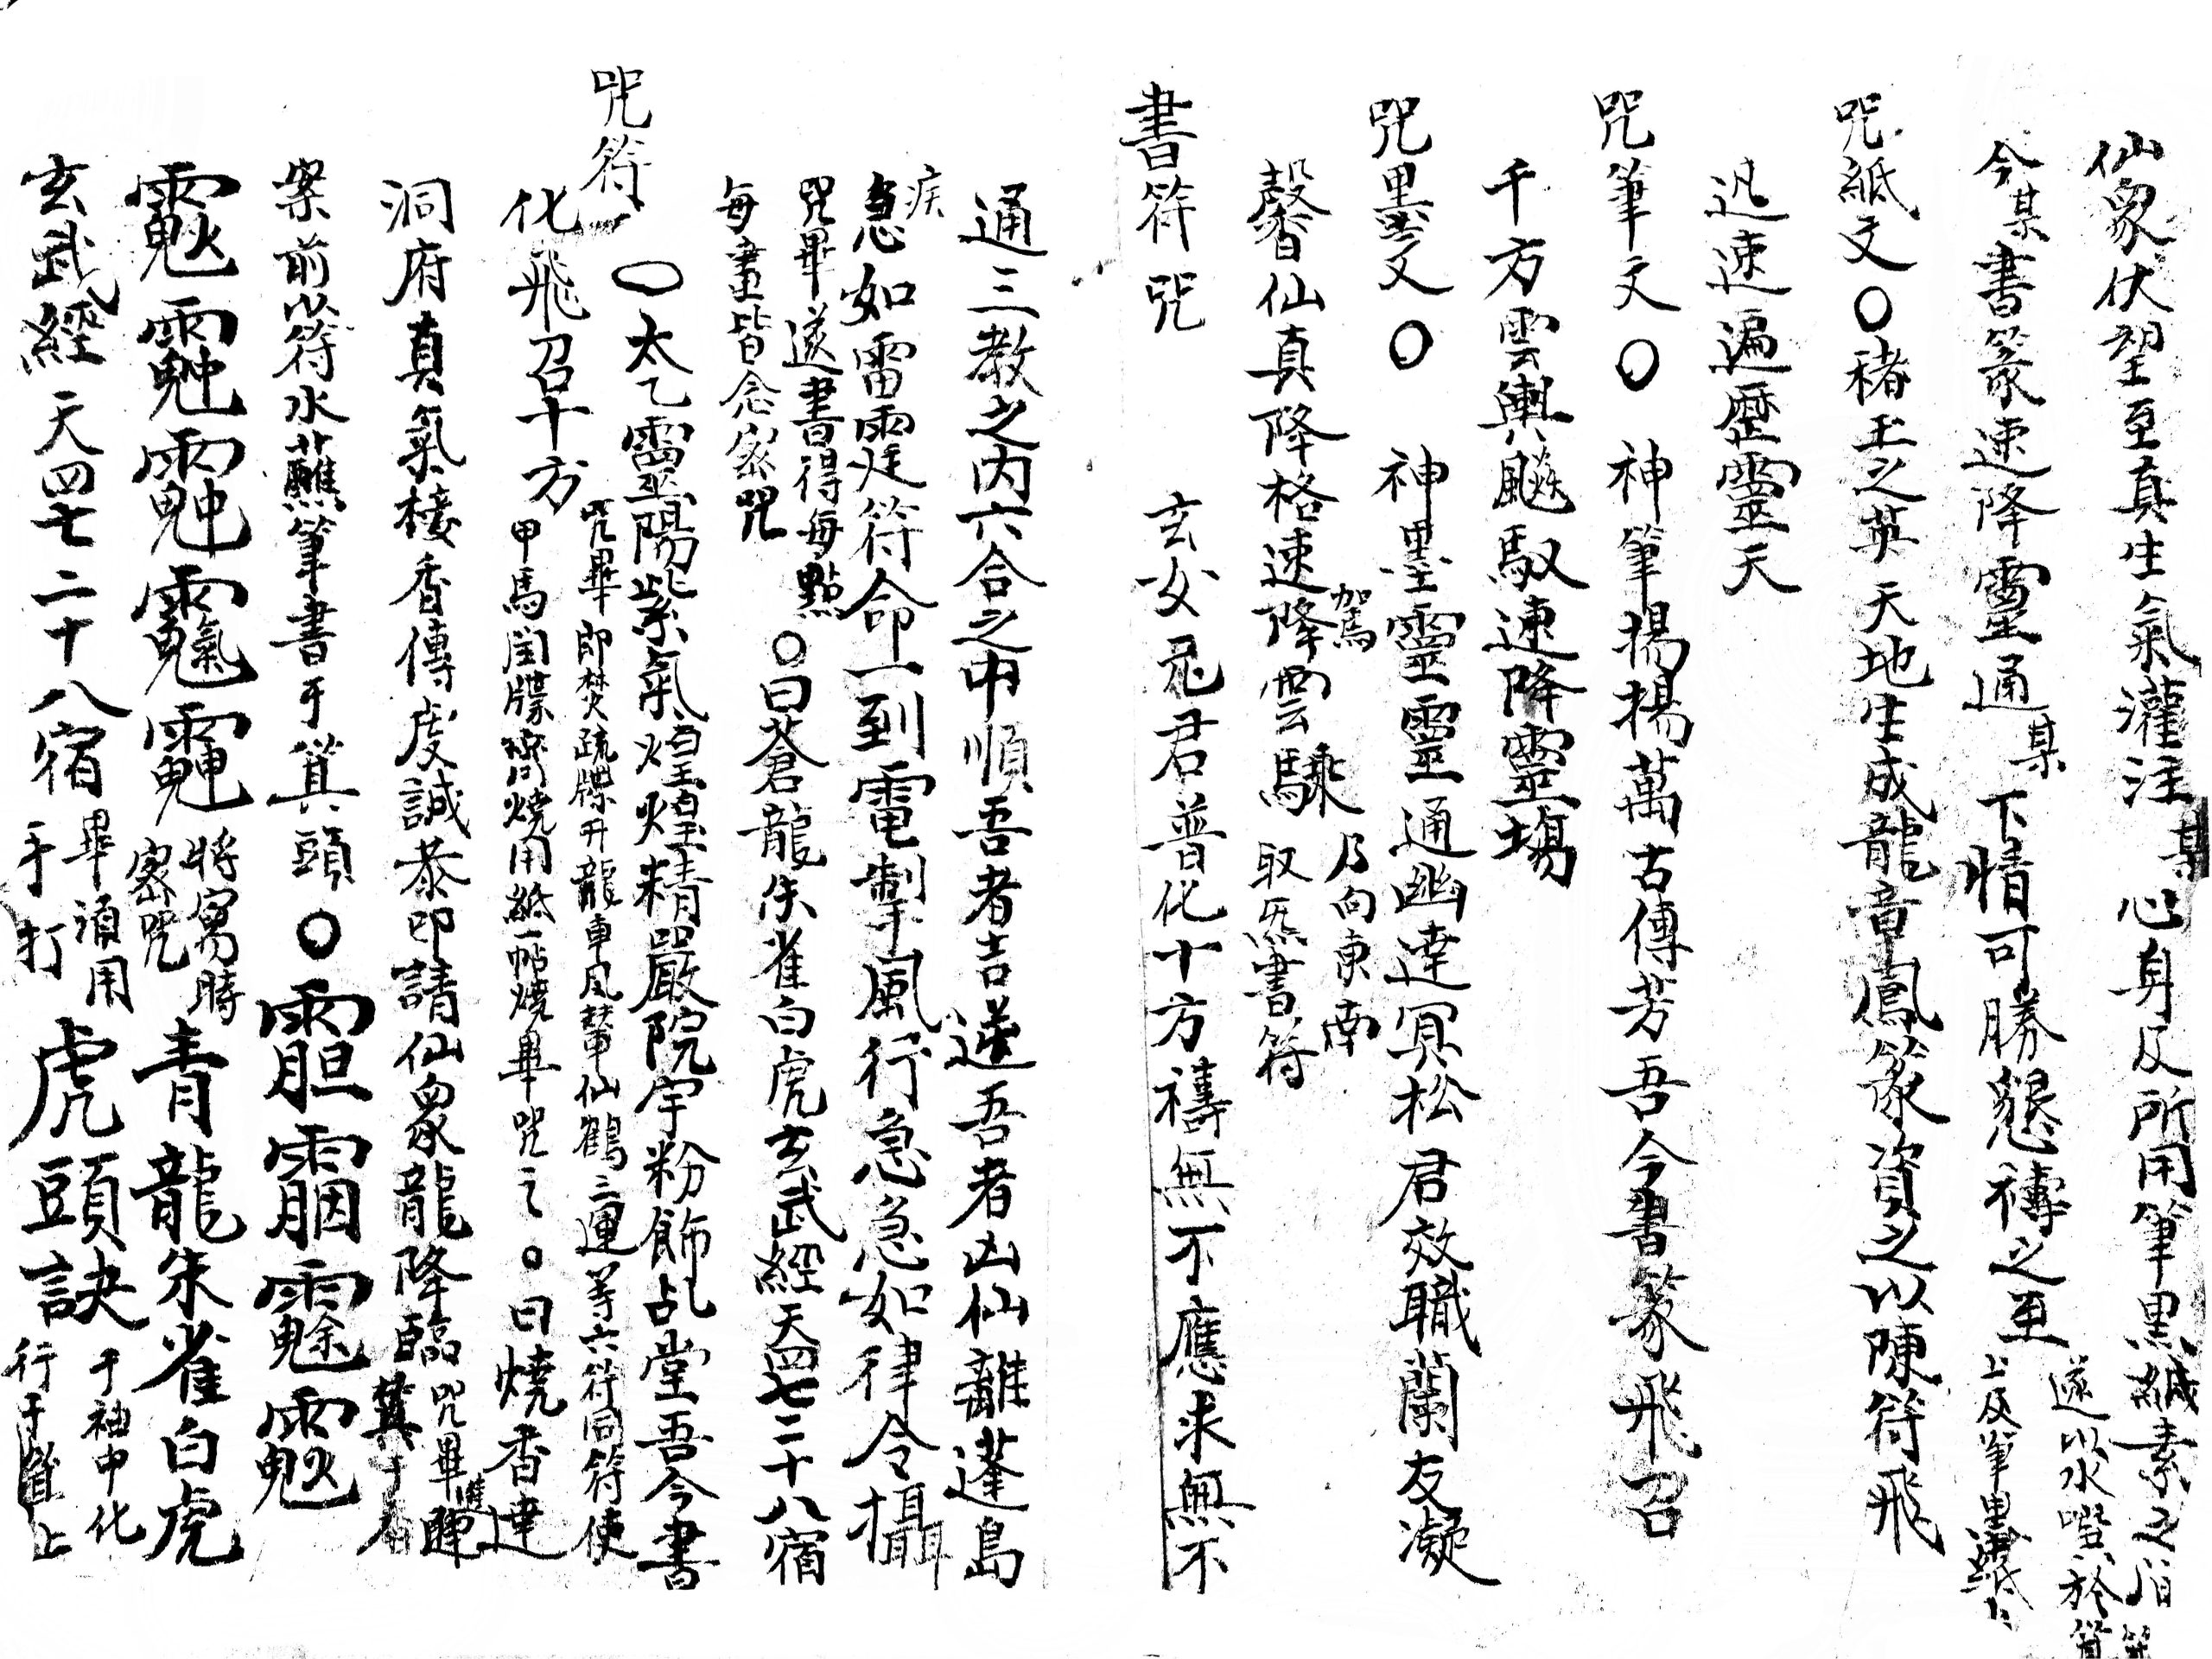 仙眾伏望至真生氣灌注某心身及所用筆黑紙素之
今某書篆速降靈通某下情可勝懇禱之至
遂以水噀於
上及筆墨紙上
咒紙文〇褚王之英天地生成龍章鳳篆資之以陳符飛
迅速遍歷靈天
咒筆文〇神筆揚揚萬古傳芳吾今書篆飛召
千方雲輿飈馭速降靈場
咒墨文〇神墨靈靈通幽達冥松君效職蘭友凝
馨仙真降格速降雲駕驂
乃向東南
取炁書符
書符咒 玄女元君普化十方禱無不應求無不
通三教之內六合之中順吾者吉逆吾者凶仙離蓬島
疾
急如雷霆符命一到電掣風行急急如律令攝
咒畢遂書得每點
每畫皆念密咒
〇曰蒼龍朱雀白虎玄武經天四七二十八宿
咒符 〇太乙靈陽紫氣煌煌精嚴院宇粉飾乩堂吾今書
化飛召十方
咒畢即焚疏牒升龍車風輦仙鶴二運等六符同符使
甲馬關牒齊燒用紙一帖燒畢咒之。曰燒香達
洞府真氣接香傳虔誠恭叩請仙眾龍降臨
咒畢
案前以符水蘸筆書于箕頭〇
密咒
將寫時
青龍朱雀白虎
玄武經天四七二十八宿
畢須用
手打
虎頭訣
于袖中化
行于箕上